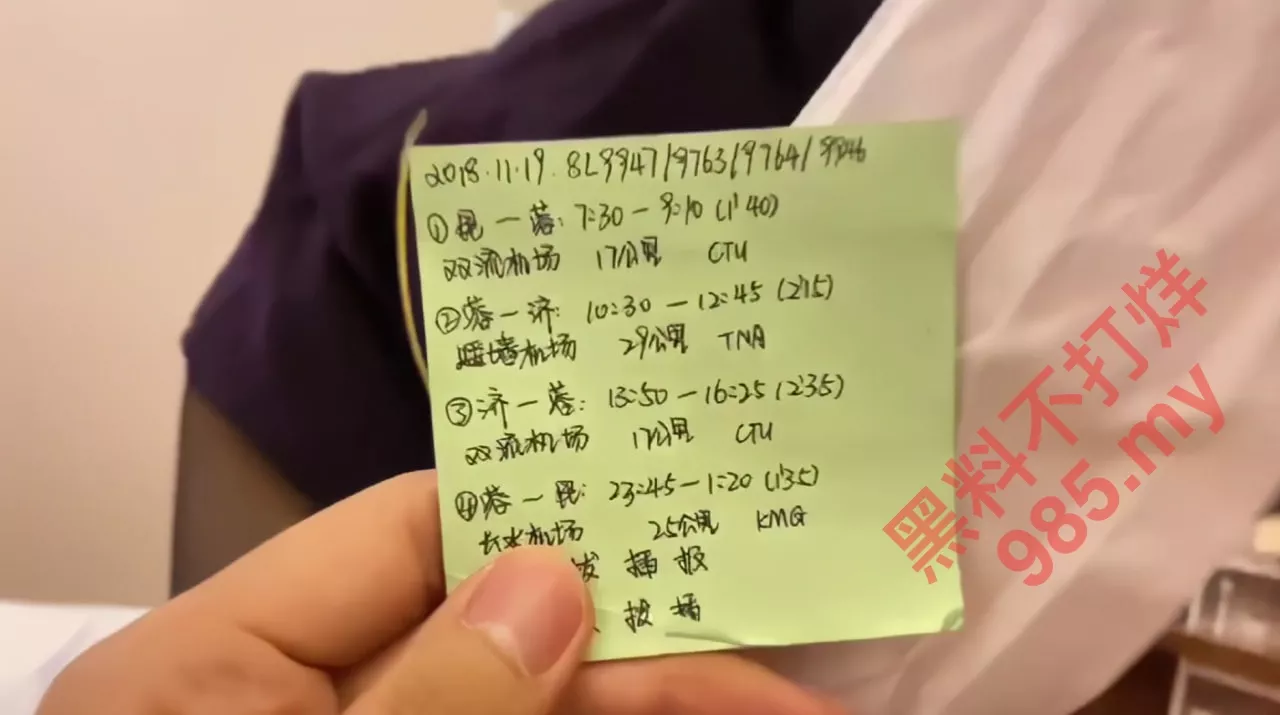 2018.11.19. 8L9947/9763/9764/9946
① 昆一蓉: 7:30 — 9:10 (1'40)
双流机场 17公里 CTU
② 蓉一济: 10:30 — 12:45 (2'15)
遥墙机场 29公里 TNA
③ 济一蓉: 13:50 — 16:25 (2'35)
双流机场 17公里 CTU
④ 蓉一昆: 23:45 — 1:20 (1'35)
长水机场 25公里 KMG
播报
黑料不打烊
985.my